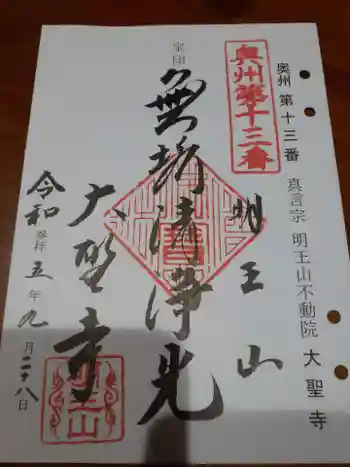 奥州 第十三番 真言宗 明王山不動院 大聖寺
奥州第十三番
明王山
宝印
無垢清浄光
大聖寺
令和五年九月二十八日
奉拝
明王山